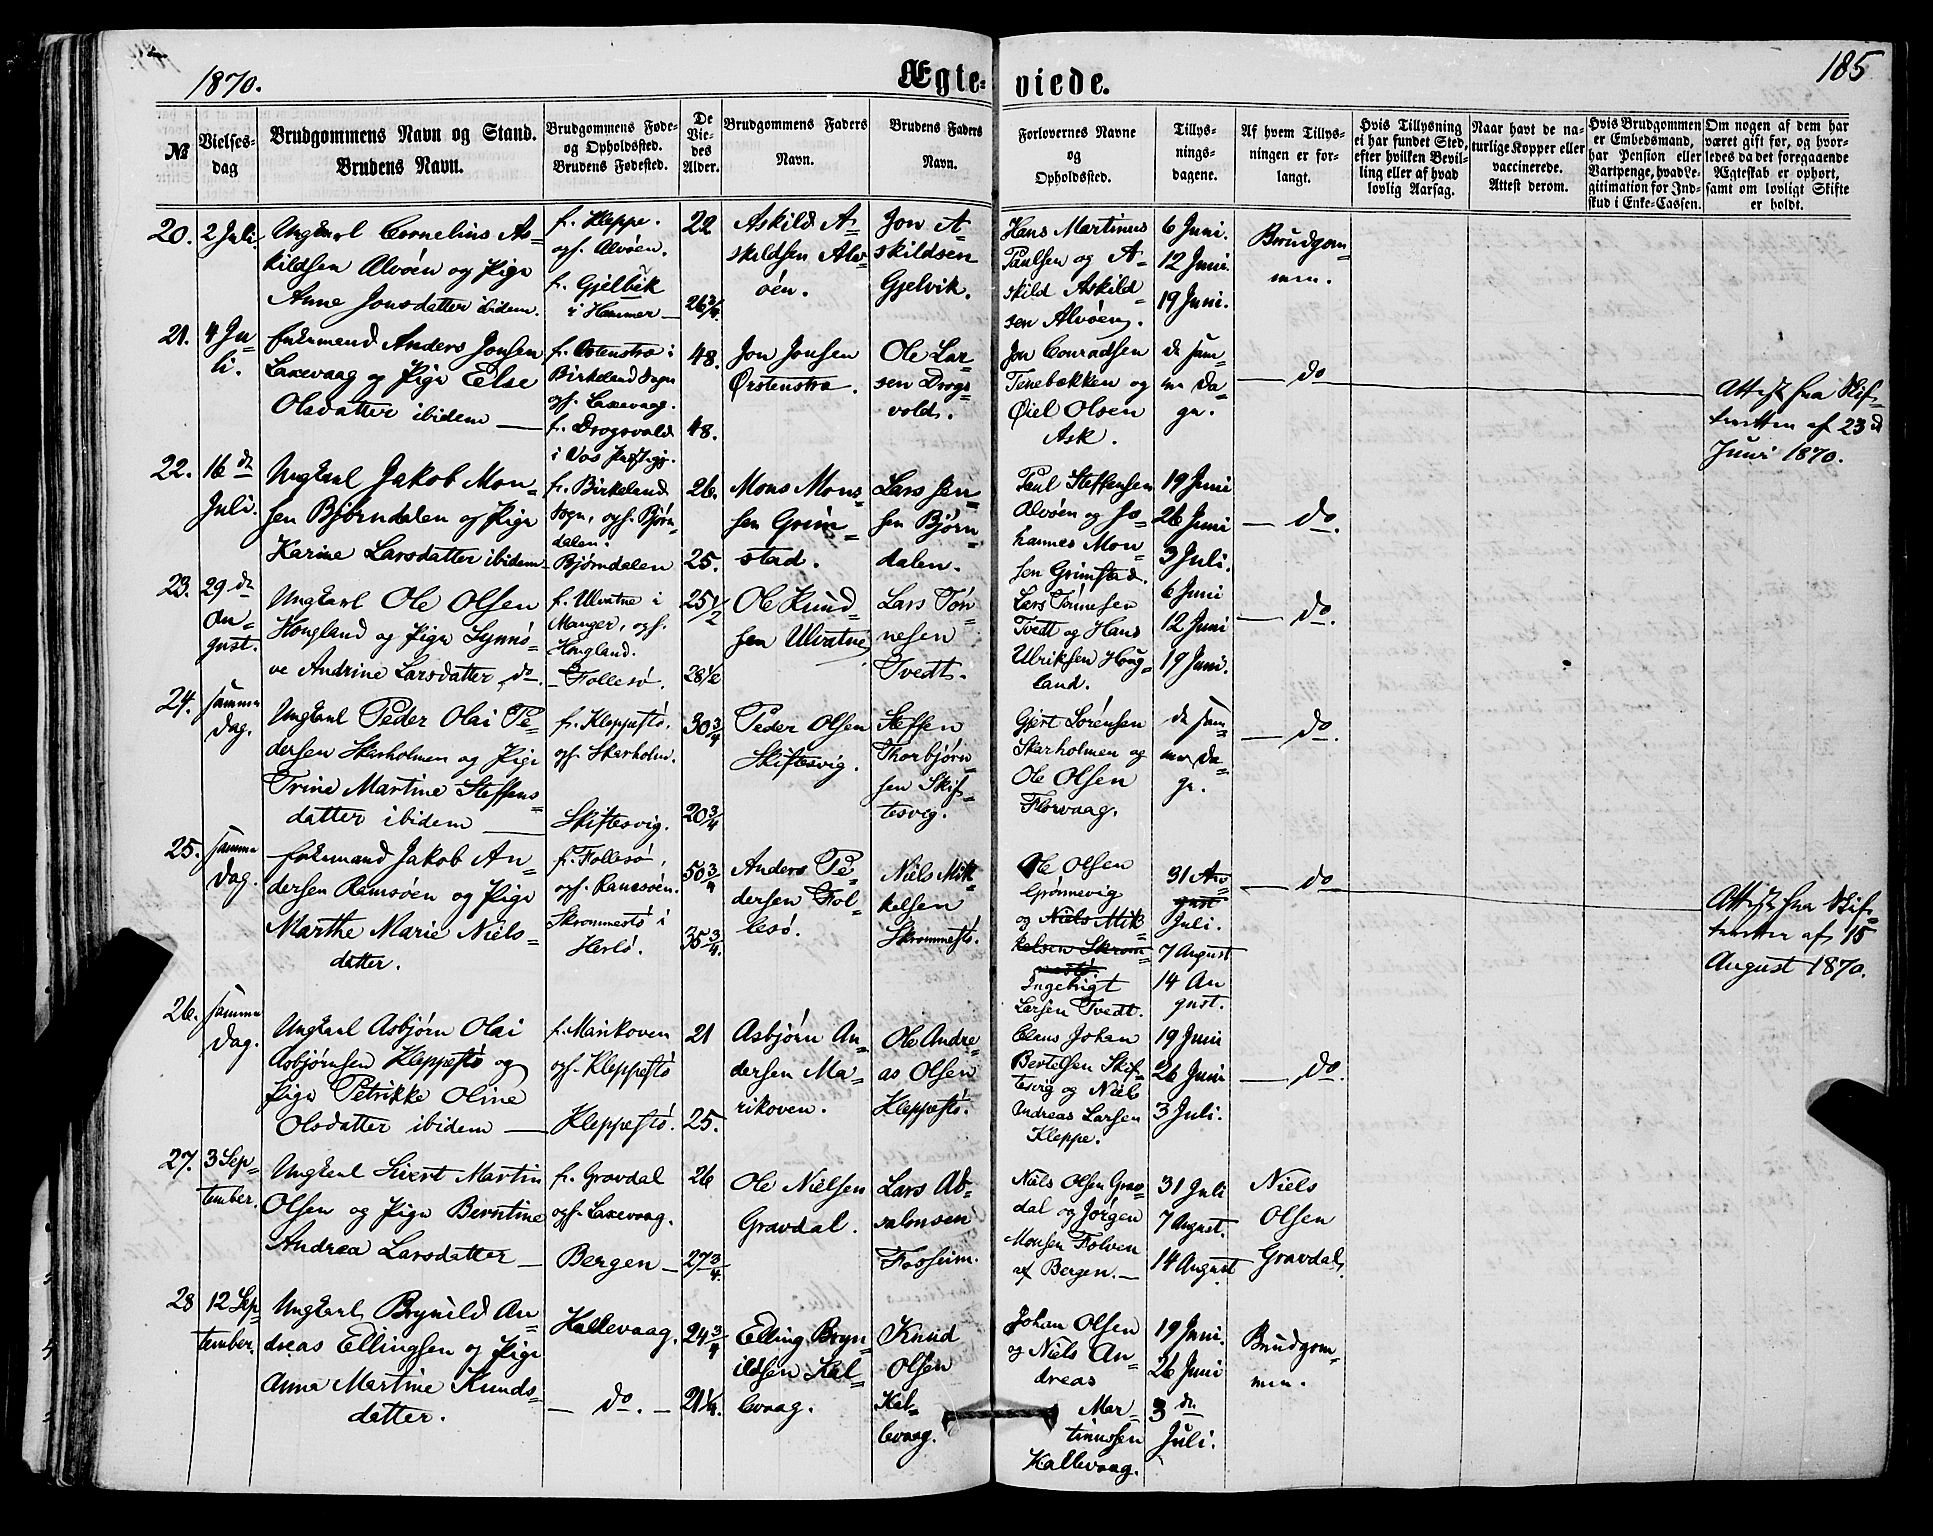 1870.
Ægte-
viede.
185
№
Vielses-
dag
Brudgommens Navn og Stand.
Brudens Navn.
Brudgommens Føde-
og Opholdssted.
Brudens Fødested.
De
Vie-
des
Alder.
Brudgommens Faders
Navn.
Brudens Faders
Navn.
Forlovernes Navne
og
Opholdssted.
Tillys-
nings-
dagene.
Af hvem Tillys-
ningen er for-
langt.
Hvis Tillysning
ei har fundet Sted,
efter hvilken Bevil-
ling eller af hvad
lovlig Aarsag.
Naar havt de na-
turlige Kopper eller
vaccinerede.
Attest derom.
Hvis Brudgommen
er Embedsmand,
har Pension eller
Vartpenge, hvad Le-
gitimation for Ind-
skud i Enke-Cassen.
Om nogen af dem har
været gift før, og hvor-
ledes da det foregaaende
Ægteskab er ophørt,
samt om lovligt Skifte
er holdt.
20.
2 Juli
Ungkarl Cornelius As-
kildsen Alvøen og Pige
Anne Jonsdatter ibidem.
f. Kleppe.
opf. Alvøen.
f. Gjelvik
i Hammer
22
26 3/4
Askild A-
skildsen Alv-
øen.
Jon A-
skildsen
Gjelvik.
Hans Martinus
Paulsen og A-
skild Askild-
sen Alvøen.
6 Juni.
12 Juni.
19 Juni.
Brudgom-
men.
21.
4 Ju-
li.
Enkemand Anders Jonsen
Laxevaag og Pige Else
Olsdatter ibidem
f. Ørstenstra i
Birkeland Sogn
opf. Laxevaag.
f. Drogsvold
i Vos Prstgj.
48.
48.
Jon Jonsen
Ørstenstra.
Ole Lar-
sen Drogs-
vold.
Jon Conradsen
Tenebækken og
Øiel Olsen
Ask.
de sam-
me Da-
ge.
do
Attest fra Skif-
teretten af 23 d
Juni 1870.
22.
16 de
Juli.
Ungkarl Jakob Mon-
sen Bjørndalen og Pige
Karine Larsdatter ibidem
f. Birkeland
Sogn, opf. Bjørn-
dalen.
Bjørndalen
26.
25.
Mons Mons-
sen Grim-
stad.
Lars Jen-
sen Bjørn-
dalen.
Paul Steffensen
Alvøen og Jo-
hannes Mon-
sen Grimstad.
19 Juni
26 Juni
3 Juli.
do.
23.
29 de
Au-
gust.
Ungkarl Ole Olsen
Hougland og Pige Synnø-
ve Andrine Larsdatter do.
f. Ulvatne i
Manger, opf.
Hougland.
Follesø.
25 1/2
28 1/2
Ole Knud-
sen Ulvatne
Lars Tøn-
nesen
Tvedt.
Lars Tønnesen
Tvedt og Hans
Ulriksen Houg-
land.
6 Juni
12 Juni
19 Juni.
do.
24.
samme
Dag.
Ungkarl Peder Olai Pe-
dersen Skarholmen og Pige
Trine Martine Steffens-
datter ibidem
f. Kleppestø.
opf. Skarholm.
Skiftesvig.
30 3/4
20 3/4
Peder Olsen
Skiftesvig.
Steffen
Thorbjørn-
sen Skif-
tesvig.
Gjert Sørensen
Skarholmen og
Ole Olsen
Florvaag.
de sam-
me Da-
ge.
do.
25.
samme
Dag.
Enkemand Jakob An-
dersen Ramsøen og Pige
Marthe Marie Niels-
datter.
f. Follesø,
opf. Ramsøen.
Skrommestø i
Herlø.
50 3/4
35 3/4
Anders Pe-
dersen Fol-
lesø.
Niels Mik-
kelsen
Skrommestø.
Ole Olsen
Grønnevig
og Niels Mik-
kelsen Skrom-
mestø
Ingebrigt
Larsen Tvedt.
31 Au-
gust
Juli.
7 August
14 Au
gust.
do
Attest fra Skif-
teretten af 15
August 1870.
26.
samme
Dag.
Ungkarl Asbjørn Olai
Asbjørnsen Kleppestø og
Pige Petrikke Oline
Olsdatter ibidem
f. Marikoven
opf. Kleppestø
Kleppestø.
21
25.
Asbjørn An-
dersen Ma-
rikoven.
Ole Andre-
as Olsen
Kleppestø.
Claus Johan
Bertelsen Skif-
tesvig og Niels
Andreas Larsen
Kleppe.
19 Juni
26 Juni
3 Juli.
do.
27.
3 Sep-
tember.
Ungkarl Sivert Martin
Olsen og Pige Berntine
Andrea Larsdatter
f. Gravdal
opf. Laxevaag.
Bergen
26
27 3/4.
Ole Nielsen
Gravdal.
Lars Ab-
salonsen
Fosheim.
Niels Olsen Grav-
dal og Jørgen
Monsen Folven
af Bergen.
31 Juli
7 August.
14 August
Niels
Olsen
Gravdal.
28
12 Sep
tember.
Ungkarl Brynild An-
dreas Ellingsen og Pige
Anna Martine Knuds-
datter.
Kallevaag.
do.
24 3/4
21 1/4.
Elling Bryn-
ildsen Kal-
levaag.
Knud
Olsen
Kal-
levaag.
Johan Olsen
og Niels An-
dreas
Mar-
tinussen
Kallevaag.
19 Juni.
26 Juni
3 de
Juli.
Brudgom-
men.